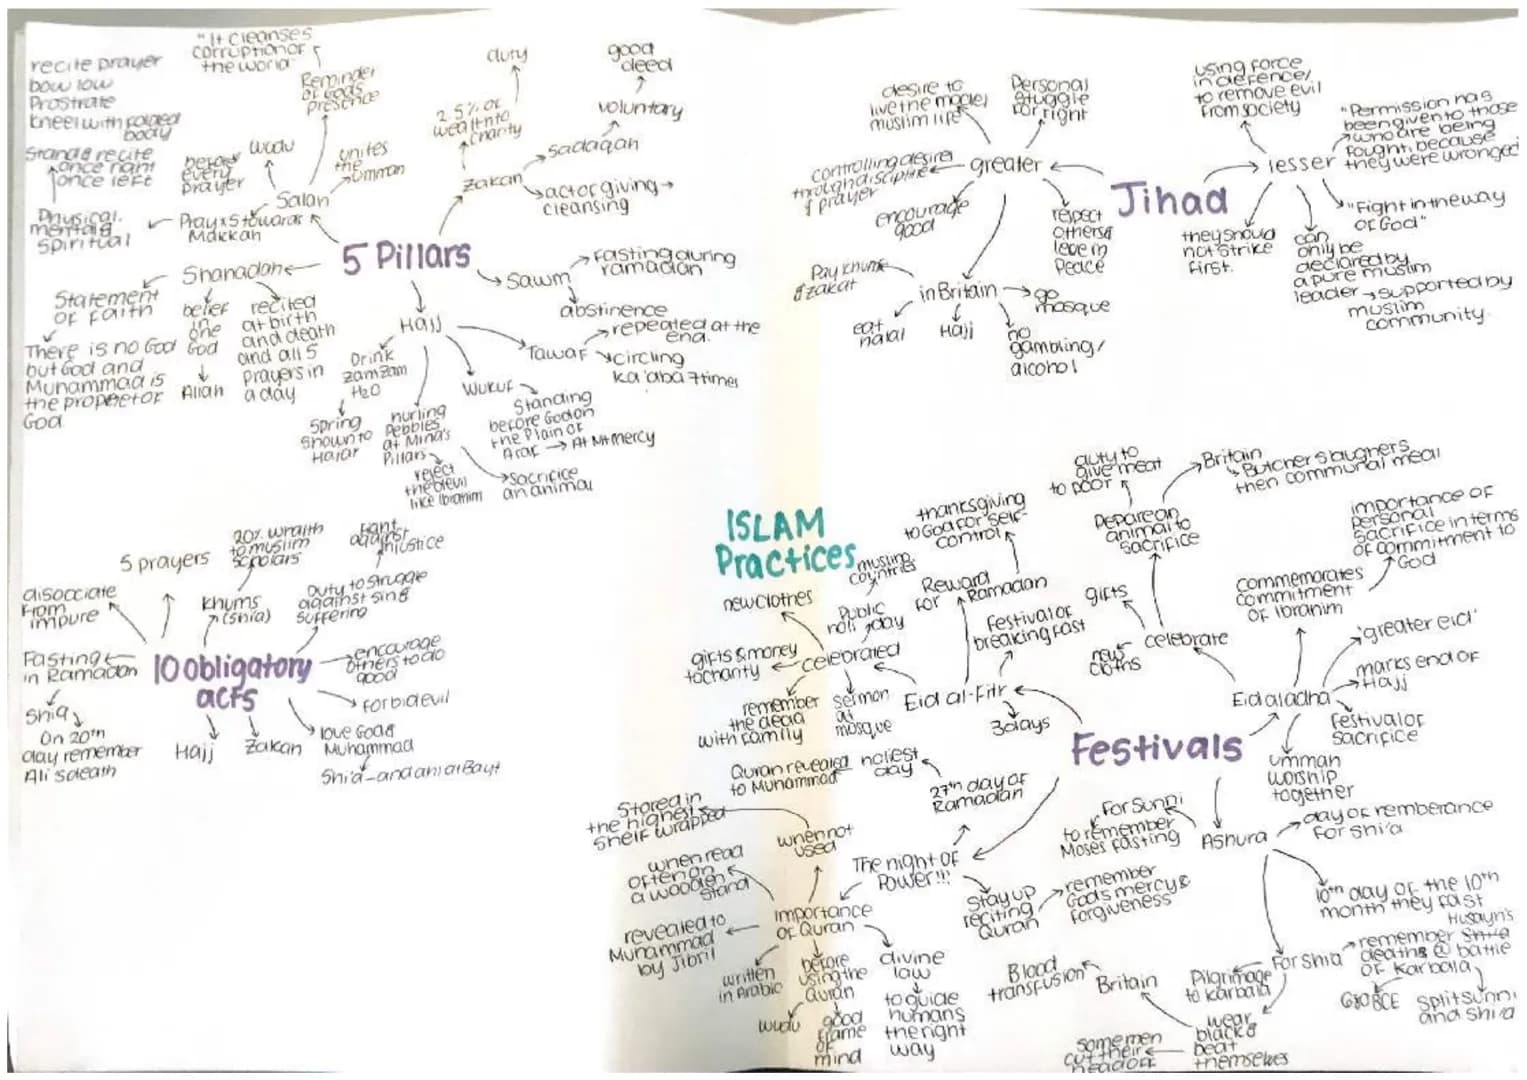 ISLAM
Practices
5 Pillars
Salah
"It cleanses
corruption of
the world"
Reminder
of Gods
presence
wudu
before
every
prayer
unites
the
ummah
Pray x5 towards
Makkah
Physical,
mental &
spiritual
recite prayer
bow low
Prostrate
kneel with folded
body
Stand & recite
once right
once left
Zakah
2.5% of
wealth to
charity
duty
sadaqah
voluntary
good
deed
act of giving →
cleansing
Shahadah
Statement
of faith
There is no God
but God and
Muhammad is
the prophet of
God
belief
in
one
God
Allah
recited
at birth
and death
and all 5
prayers in
a day
Sawm
Fasting during
ramadan
abstinence
Hajj
Drink
zamzam
H2O
Spring
shown to
Hajar
hurling
Pebbles
at Mina's
Pillars
reject
the devil
like Ibrahim
Sacrifice
an animal
Wukuf
Standing
before God on
the Plain of
Araf → At Mt Mercy
Tawaf
repeated at the
end.
circling
ka'aba 7 times
10 obligatory
acts
5 prayers
disocciate
from
impure
Fasting
in Ramadan
Shia
On 20th
day remember
Ali's death
Khums
(Shia)
20% wealth
to muslim
scholars
Duty to struggle
against sin &
suffering
Fight
against
injustice
encourage
others to do
good
forbid evil
love God &
Muhammad
Shi'a - and ahl al Bayt
Zakah
Hajj
Jihad
greater
desire to
live the model
muslim life
Personal
stuggle
for right
controlling desires
through discipline
& prayer
encourage
good
respect
others &
leve in
peace
in Britain
Pay khums
& zakat
eat
halal
Hajj
no
gambling/
alcohol
go
mosque
lesser
using force
in defence/
to remove evil
from society
"Permission has
been given to those
who are being
fought, because
they were wronged
"Fight in the way
of God"
they should
not strike
first.
can
only be
declared by
a pure muslim
leader → supported by
muslim
community.
Festivals
Eid al-Fitr
3 days
Festival of
breaking fast
Reward
for Ramadan
thanksgiving
to God for self-
control
celebrated
new clothes
Public
holiday
muslim
countries
gifts & money
to charity
remember
the dead
with family
sermon
at
mosque
Eid al adha
celebrate
gifts
new
cloths
Depare an
animal to
sacrifice
duty to
give meat
to poor
Britain
Butcher slaughers
then communal meal
commemorates
commitment
of Ibrahim
importance of
personal
sacrifice in terms
of commitment to
God
'greater eid'
marks end of
Hajj
festival of
sacrifice
ummah
worship
together
Ashura
for Sunni
to remember
Moses fasting
day of remberance
for shi'a
10th day of the 10th
month they fast
For shia
remember
Husayn's
deaths @ battle
of Karbala
680 BCE
split sunni
and shi'a
Pilgrimage
to karbala
wear
black &
beat
themselves
some men
cut their
head off
Britain
Blood
transfusion
The night of
Power!!!
27th day of
Ramadan
holiest
day
Quran revealed
to Muhammad
Stay up
reciting
Quran
remember
God's mercy &
forgiveness
importance
of Quran
when not
used
Stored in
the highest
shelf wrapped
when read
often on
a wooden
stand
revealed to
Muhammad
by Jibril
written
in Arabic
before
using the
Quran
wudu
good
frame
of
mind
divine
law
to guide
humans
the right
way